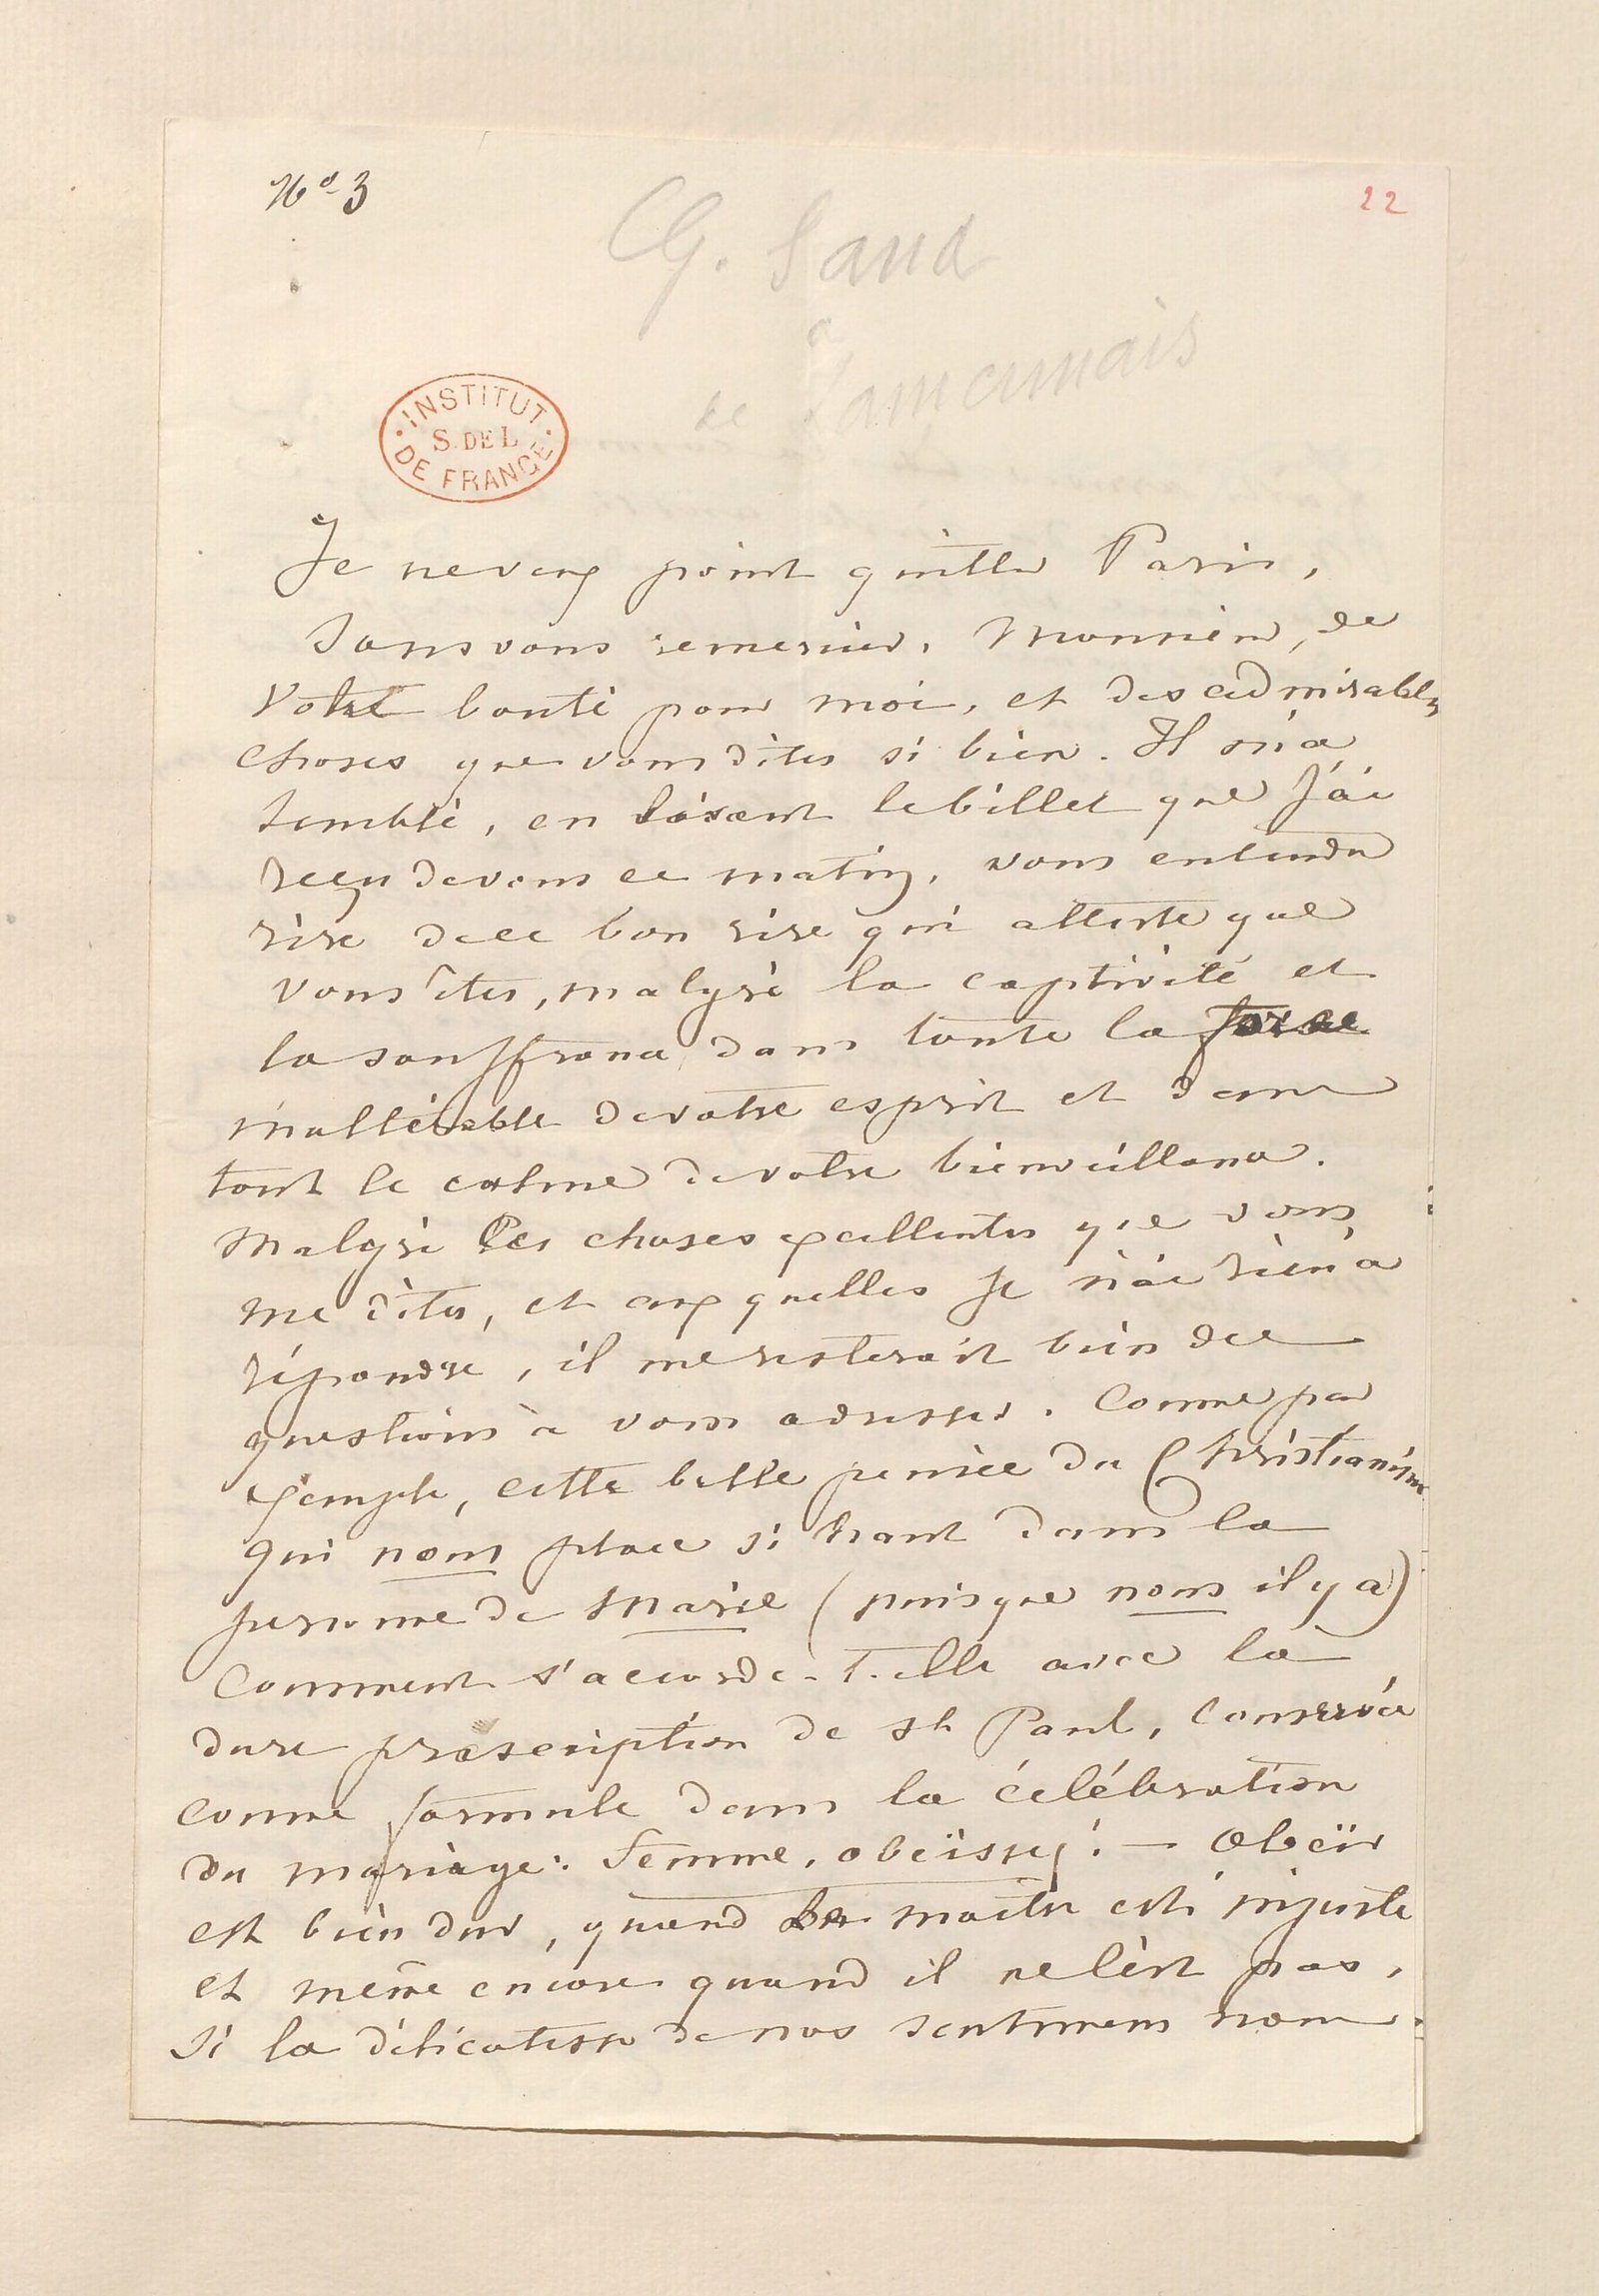 N° 3
22
G. Sand
à
de Lamennais
INSTITUT
S. DE L.
DE FRANCE
Je ne veux point quitter Paris,
sans vous remercier, Monsieur, de
votre bonté pour moi, et des admirables
choses que vous dites si bien. Il m'a
semblé, en lisant le billet que j'ai
reçu de vous ce matin, vous entendre
rire de ce bon rire qui atteste que
vous êtes, malgré la captivité et
la souffrance, dans toute la force
inaltérable de votre esprit et dans
tout le calme de votre bienveillance.
Malgré les choses excellentes que vous
me dites, et auxquelles je n'ai rien à
répondre, il me resterait bien des
questions à vous adresser. Comme par
exemple, cette belle pensée du Christianisme
qui nous place si haut dans la
personne de Marie (puisque nous il y a)
Comment s'accorde-t-elle avec la
dure prescription de st Paul, conservée
comme formule dans la célébration
du mariage: Femme, obéissez! — Obéir
est bien dur, quand le maître est injuste
et même encore quand il ne l'est pas,
si la délicatesse de nos sentimens nous